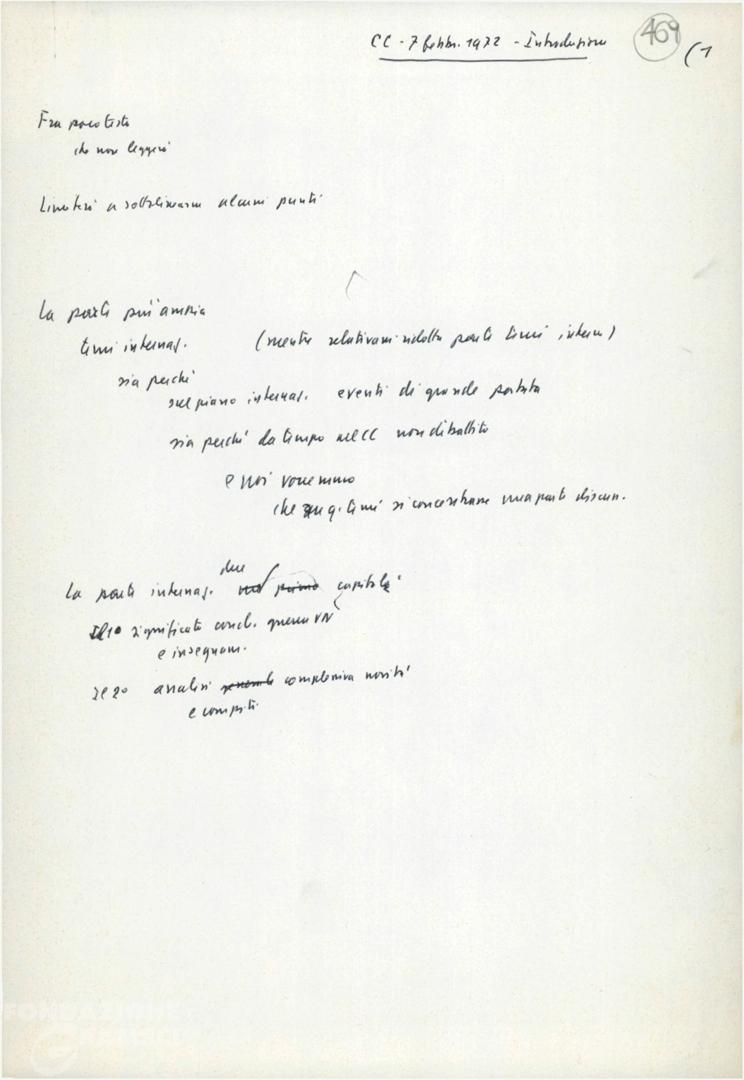 CC - 7 febbr. 1972 - Introduzione
469
(1
Fra poco testo
che non leggerò
Limiterò a sottolineare alcuni punti
La parte più ampia
temi internaz. (mentre relativam. ridotta parte temi interni)
sia perché
sul piano internaz. eventi di grande portata
sia perché da tempo nel CC non dibattito
e noi vorremmo
che su q. temi si concentrasse una parte discuss.
due
La parte internaz. capitoli
Il 1º significato concl. guerra VN
e insegnam.
Il 2º analisi complessiva novità
e compiti
FONDAZIONE
GRAMSCI